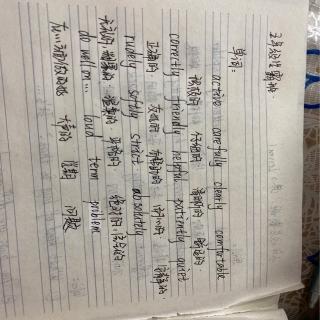 五年级上
单词:
active carefully clearly comfortable
积极的 仔细的 清晰的 舒适的
correctly friendly helpful quiet
正确的 友好的 有帮助的 安静的
rudely softly strict absolutely
无礼的,粗鲁的 严格的 绝对的,
do well in... loud term problem
在...方面做得好 大声的 学期 问题